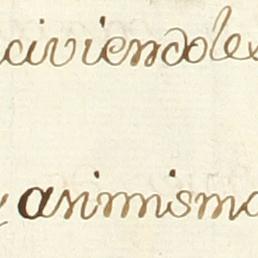 civiendoles
asimismo